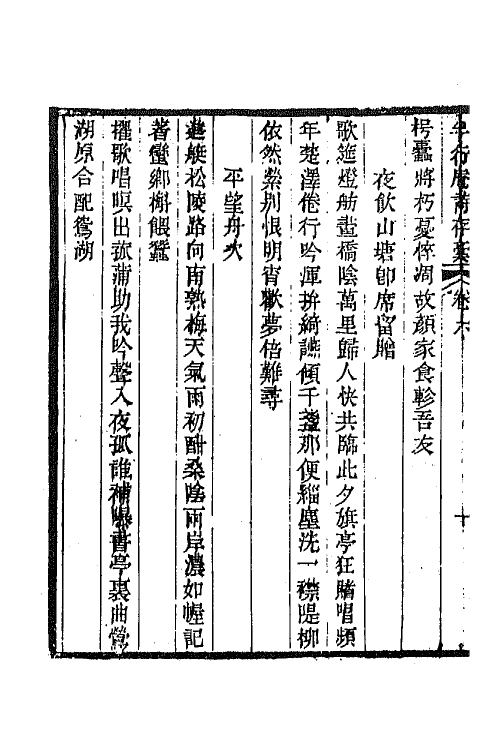 半行庵詩存稾 卷六 十
枵蠹將朽憂悴凋故顏家食軫吾友
夜飲山塘卽席留贈
歌筵燈舫畫橋陰萬里歸人快共臨此夕旗亭狂賭唱頻
年楚澤倦行吟渾拚綺讌傾千盞那便緇塵洗一襟隄柳
依然縈別恨明宵歡夢倍難尋
平望舟次
進艇松陵路向南熟梅天氣雨初酣桑陰兩岸濃如幄記
著蠻鄉檞餵蠶
櫂歌唱暝出菰蒲助我吟聲入夜孤誰補曝書亭裏曲鶯
湖原合配鴛湖